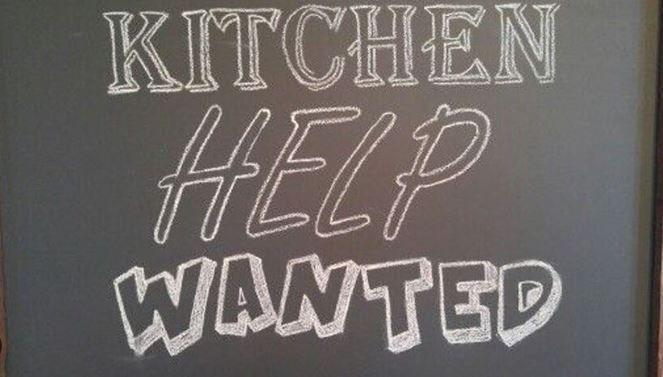 KITCHEN
HELP
WANTED